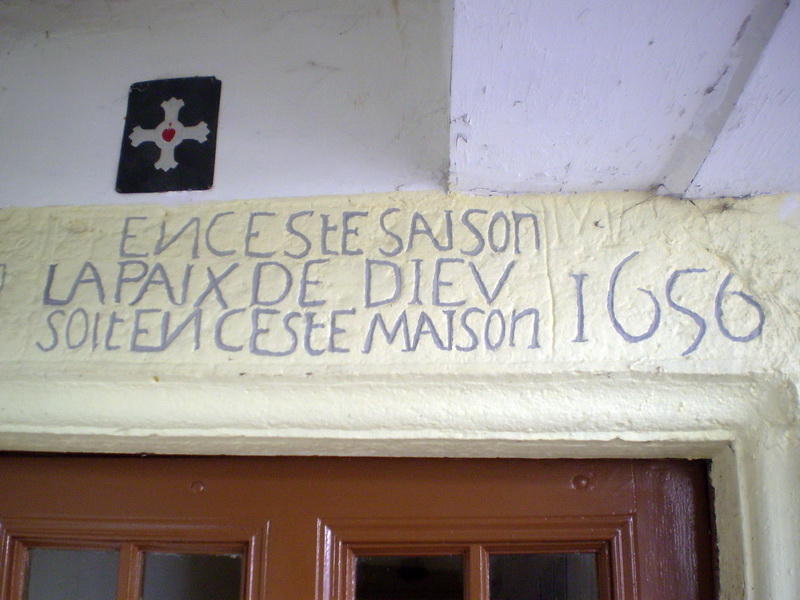 EN CESTE SAISON
LA PAIX DE DIEV
SOIT EN CESTE MAISON
1656